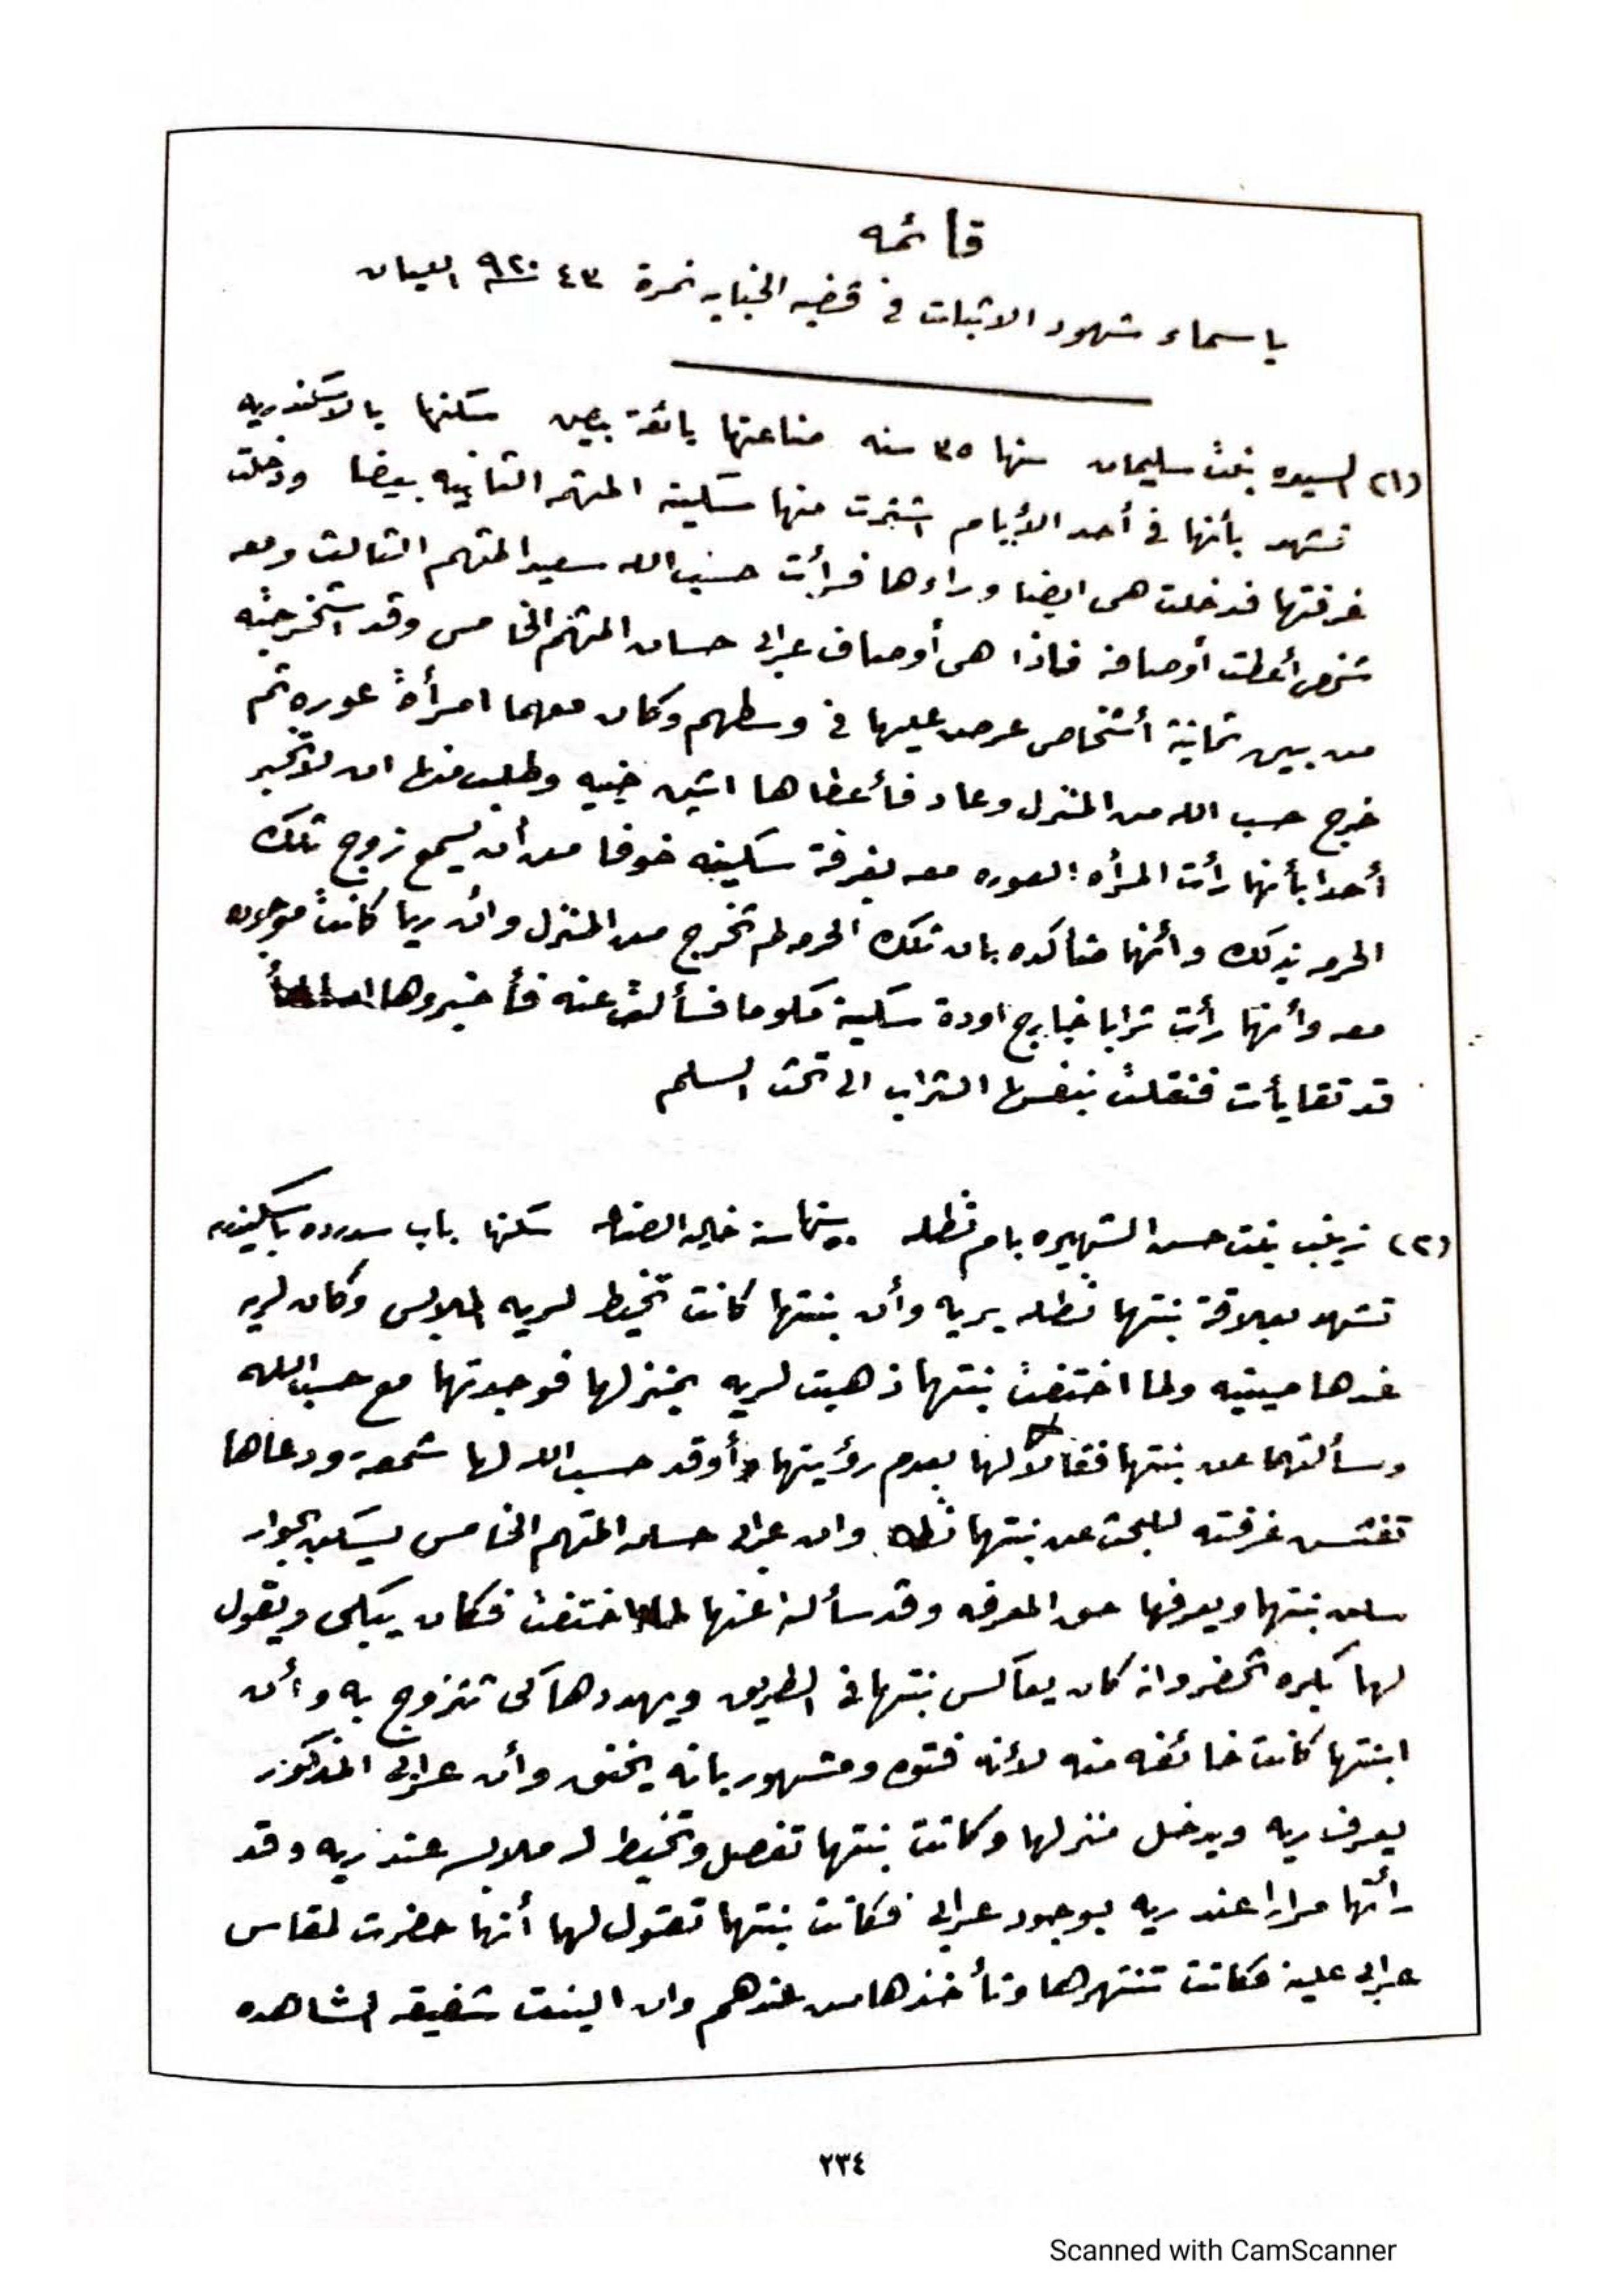 قائمه
باسماء شهود الاثبات في قضيه الجنايه نمرة ٤٣ سنة ٩٢٠ اللبان
(١) السيده بنت سليمان سنها ٣٥ سنه صناعتها بائعة بيض سكنها بالاسكندريه
تشهد بأنها في أحد الأيام اشترت منها سكينة المتهمه الثانيه بيضا ودخلت
غرفتها فدخلت هى ايضا وراءها فرأت حسب الله سعيد المتهم الثالث ومعه
شخص أعطت أوصافه فاذا هى أوصاف عرابى حسان المتهم الخامس وقد استخرجته
من بين ثمانية أشخاص عرض عليها في وسطهم وكان معهما امرأة عوره ثم
خرج حسب الله من المنزل وعاد فأعطاها اثنين جنيه وطلب منها ان لا تخبر
أحدا بأنها رأت المرأه العوره معه بغرفة سكينه خوفا من أن يسمع زوج تلك
الحرمه بذلك وأنها متأكده بان تلك الحرمه لم تخرج من المنزل وان ريا كانت موجوده
معه وأنها رأت ترابا خارج اودة سكينة مكوما فسألت عنه فأخبروها
قد تقايأت فنقلت بنفسها التراب الى تحت السلم
(٢) زينب بنت حسن الشهيره بام نظله سنها ٥٠ سنة خاليه الصناعه سكنها باب سدره باسكندريه
تشهد بعلاقة بنتها نظله بريه وأن بنتها كانت تخيط لريه الملابس وكان لريه
عندها صينيه ولما اختفت بنتها ذهبت لريه بمنزلها فوجدتها مع حسب الله
وسألتهما عن بنتها فقالا لها بعدم رؤيتها وأوقد حسب الله لها شمعة ودعاها
تفتش غرفته للبحث عن بنتها نظله وان عرابى حسان المتهم الخامس يسكن بجوار
سكن بنتها ويعرفها حق المعرفه وقد سألته عنها لما اختفت فكان يبكى ويقول
لها بكره تحضر وانه كان يعاكس بنتها في الطريق ويهددها كى تتزوج به وأن
ابنتها كانت خائفه منه لأنه فتوه ومشهور بانه يخنق وأن عرابى المذكور
يعرف ريه ويدخل منزلها وكانت بنتها تفصل وتخيط له ملابسه عند ريه وقد
رأتها مرارا عند ريه بوجود عرابى فكانت بنتها تقول لها أنها حضرت لمقاس
عرابى عليه فكانت تنتهرها وتأخذها من عندهم وان البنت شفيقه الشاهده
٢٣٤
Scanned with CamScanner